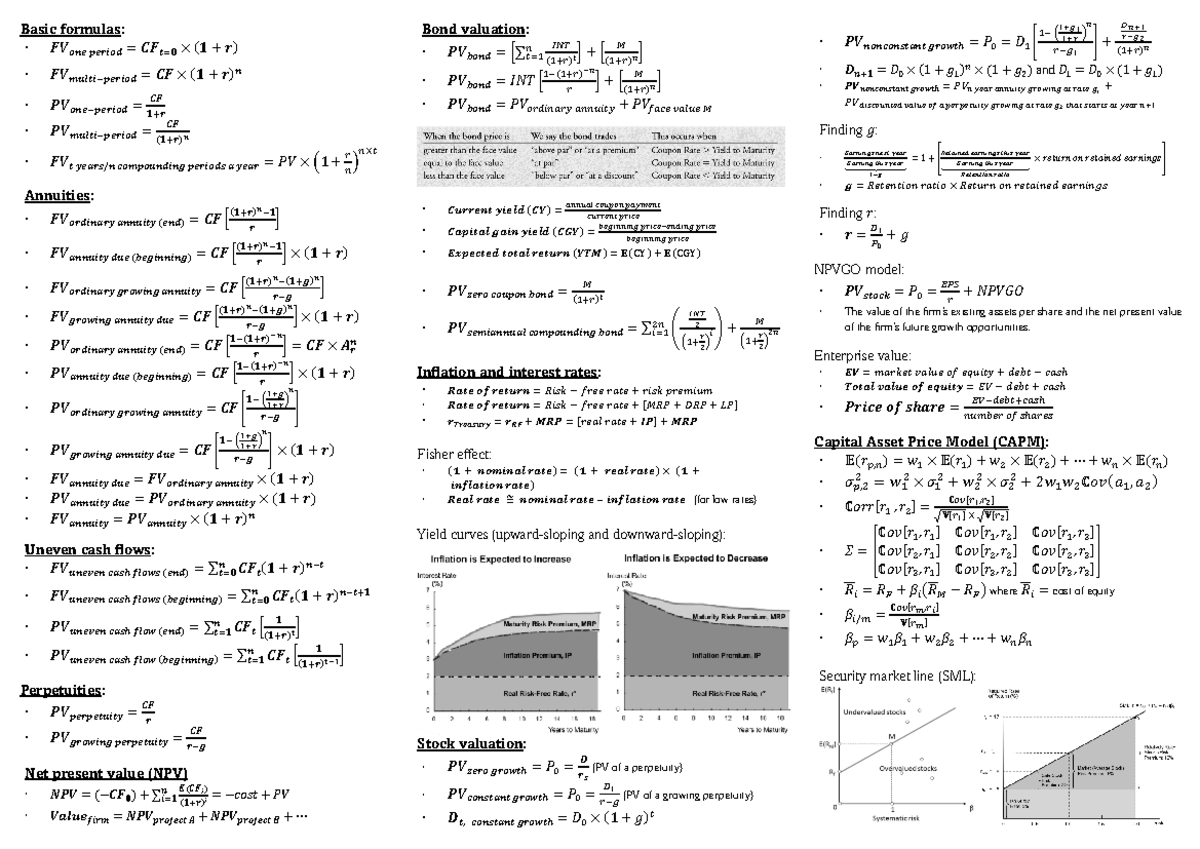 Basic formulas:
· FV_one period = CF_t=0 × (1 + r)
· FV_multi−period = CF × (1 + r)^n
· PV_one−period = CF/(1+r)
· PV_multi−period = CF/(1+r)^n
· FV_t years/n compounding periods a year = PV × (1 + r/n)^(n×t)
Annuities:
· FV_ordinary annuity (end) = CF [((1+r)^n−1)/r]
· FV_annuity due (beginning) = CF [((1+r)^n−1)/r] × (1 + r)
· FV_ordinary growing annuity = CF [((1+r)^n−(1+g)^n)/(r−g)]
· FV_growing annuity due = CF [((1+r)^n−(1+g)^n)/(r−g)] × (1 + r)
· PV_ordinary annuity (end) = CF [(1−(1+r)^−n)/r] = CF × A_r^n
· PV_annuity due (beginning) = CF [(1−(1+r)^−n)/r] × (1 + r)
· PV_ordinary growing annuity = CF [(1−((1+g)/(1+r))^n)/(r−g)]
· PV_growing annuity due = CF [(1−((1+g)/(1+r))^n)/(r−g)] × (1 + r)
· FV_annuity due = FV_ordinary annuity × (1 + r)
· PV_annuity due = PV_ordinary annuity × (1 + r)
· FV_annuity = PV_annuity × (1 + r)^n
Uneven cash flows:
· FV_uneven cash flows (end) = ∑_t=0^n CF_t(1 + r)^(n−t)
· FV_uneven cash flows (beginning) = ∑_t=0^n CF_t(1 + r)^(n−t+1)
· PV_uneven cash flow (end) = ∑_t=1^n CF_t [1/(1+r)^t]
· PV_uneven cash flow (beginning) = ∑_t=1^n CF_t [1/(1+r)^(t−1)]
Perpetuities:
· PV_perpetuity = CF/r
· PV_growing perpetuity = CF/(r−g)
Net present value (NPV)
· NPV = (−CF_0) + ∑_i=1^n E(CF_i)/(1+r)^i = −cost + PV
· Value_firm = NPV_project A + NPV_project B + ⋯
Bond valuation:
· PV_bond = [∑_t=1^n INT/(1+r)^t] + [M/(1+r)^n]
· PV_bond = INT [(1−(1+r)^−n)/r] + [M/(1+r)^n]
· PV_bond = PV_ordinary annuity + PV_face value M
When the bond price is We say the bond trades This occurs when
greater than the face value "above par" or "at a premium" Coupon Rate > Yield to Maturity
equal to the face value "at par" Coupon Rate = Yield to Maturity
less than the face value "below par" or "at a discount" Coupon Rate < Yield to Maturity
· Current yield (CY) = annual coupon payment/current price
· Capital gain yield (CGY) = beginning price−ending price/beginning price
· Expected total return (YTM) = E(CY) + E(CGY)
· PV_zero coupon bond = M/(1+r)^t
· PV_semiannual compounding bond = ∑_i=1^2n ((INT/2)/(1+r/2)^i) + M/(1+r/2)^2n
Inflation and interest rates:
· Rate of return = Risk − free rate + risk premium
· Rate of return = Risk − free rate + [MRP + DRP + LP]
· r_Treasury = r_RF + MRP = [real rate + IP] + MRP
Fisher effect:
· (1 + nominal rate) = (1 + real rate) × (1 +
inflation rate)
· Real rate ≅ nominal rate − inflation rate (for low rates)
Yield curves (upward-sloping and downward-sloping):
Inflation is Expected to Increase
Interest Rate
(%)
7
6
5
4
3
2
1
Maturity Risk Premium, MRP
Inflation Premium, IP
Real Risk-Free Rate, r*
0 2 4 6 8 10 12 14 16 18
Years to Maturity
Inflation is Expected to Decrease
Interest Rate
(%)
7
6
5
4
3
2
1
Maturity Risk Premium, MRP
Inflation Premium, IP
Real Risk-Free Rate, r*
0 2 4 6 8 10 12 14 16 18
Years to Maturity
Stock valuation:
· PV_zero growth = P_0 = D/r_s (PV of a perpetuity)
· PV_constant growth = P_0 = D_1/(r−g) (PV of a growing perpetuity)
· D_t, constant growth = D_0 × (1 + g)^t
· PV_nonconstant growth = P_0 = D_1 [(1−((1+g_1)/(1+r))^n)/(r−g_1)] + (D_n+1/(r−g_2))/(1+r)^n
· D_n+1 = D_0 × (1 + g_1)^n × (1 + g_2) and D_1 = D_0 × (1 + g_1)
· PV_nonconstant growth = PV_n year annuity growing at rate g_1 +
PV_discounted value of a perpetuity growing at rate g2 that starts at year n+1
Finding g:
· Earning next year/Earning this year = 1 + [Retained earnings this year/Earning this year × return on retained earnings]
1−g Retention ratio
· g = Retention ratio × Return on retained earnings
Finding r:
· r = D_1/P_0 + g
NPVGO model:
· PV_stock = P_0 = EPS/r + NPVGO
· The value of the firm's existing assets per share and the net present value
of the firm's future growth opportunities.
Enterprise value:
· EV = market value of equity + debt − cash
· Total value of equity = EV − debt + cash
· Price of share = EV−debt+cash/number of shares
Capital Asset Price Model (CAPM):
· 𝔼(r_p,n) = w_1 × 𝔼(r_1) + w_2 × 𝔼(r_2) + ⋯ + w_n × 𝔼(r_n)
· σ²_p,2 = w_1² × σ_1² + w_2² × σ_2² + 2w_1w_2ℂov(a_1, a_2)
· ℂorr[r_1, r_2] = ℂov[r_1,r_2]/(√𝕍[r_1] × √𝕍[r_2])
ℂov[r_1, r_1] ℂov[r_1, r_2] ℂov[r_1, r_3]
· Σ = ℂov[r_2, r_1] ℂov[r_2, r_2] ℂov[r_2, r_3]
ℂov[r_3, r_1] ℂov[r_3, r_2] ℂov[r_3, r_3]
· R̅_i = R_F + β_i(R̅_M − R_F) where R̅_i = cost of equity
· β_i/m = ℂov[r_m,r_i]/𝕍[r_m]
· β_p = w_1β_1 + w_2β_2 + ⋯ + w_nβ_n
Security market line (SML):
E(R_i)
Undervalued stocks
M
E(R_M)
Overvalued stocks
R_f
0 1 β
Systematic risk